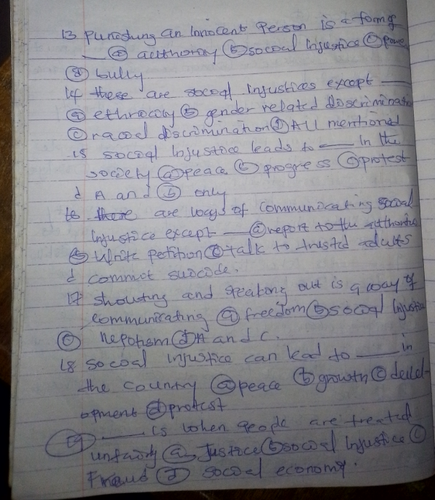 13 Punishing an innocent person is a form of
___ (a) authority (b) social injustice (c) peace
(d) bully
14 these are social injustices except ___
(a) ethnicity (b) gender related discrimination
(c) racial discrimination (d) All mentioned
15 social injustice leads to ___ in the
society (a) peace (b) progress (c) protest
d A and (b) only
16 these are ways of communicating social
injustice except ___ (a) report to the authorities
(b) Write petition (c) talk to trusted adults
d commit suicide.
17 shouting and speaking out is a way of
communicating (a) freedom (b) social injustice
(c) Nepotism (d) A and C.
18 social injustice can lead to ___ in
the country (a) peace (b) growth (c) devel-
opment (d) protest
19 ___ is when people are treated
unfairly (a) Justice (b) social injustice (c)
Fraud (d) social economy.